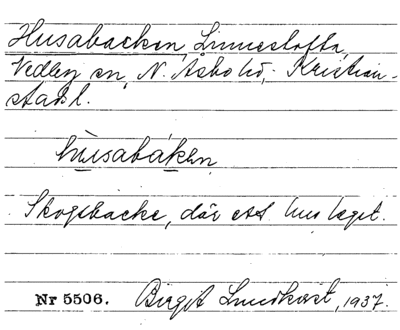 Husabacken, Linneslätta,
Vedby sn, N. Åsbo hd, Kristian-
stads l.
husabákɛn
Skogsbacke, där ett hus legat.
Nr 5506. Birgit Lundkvist, 1937.